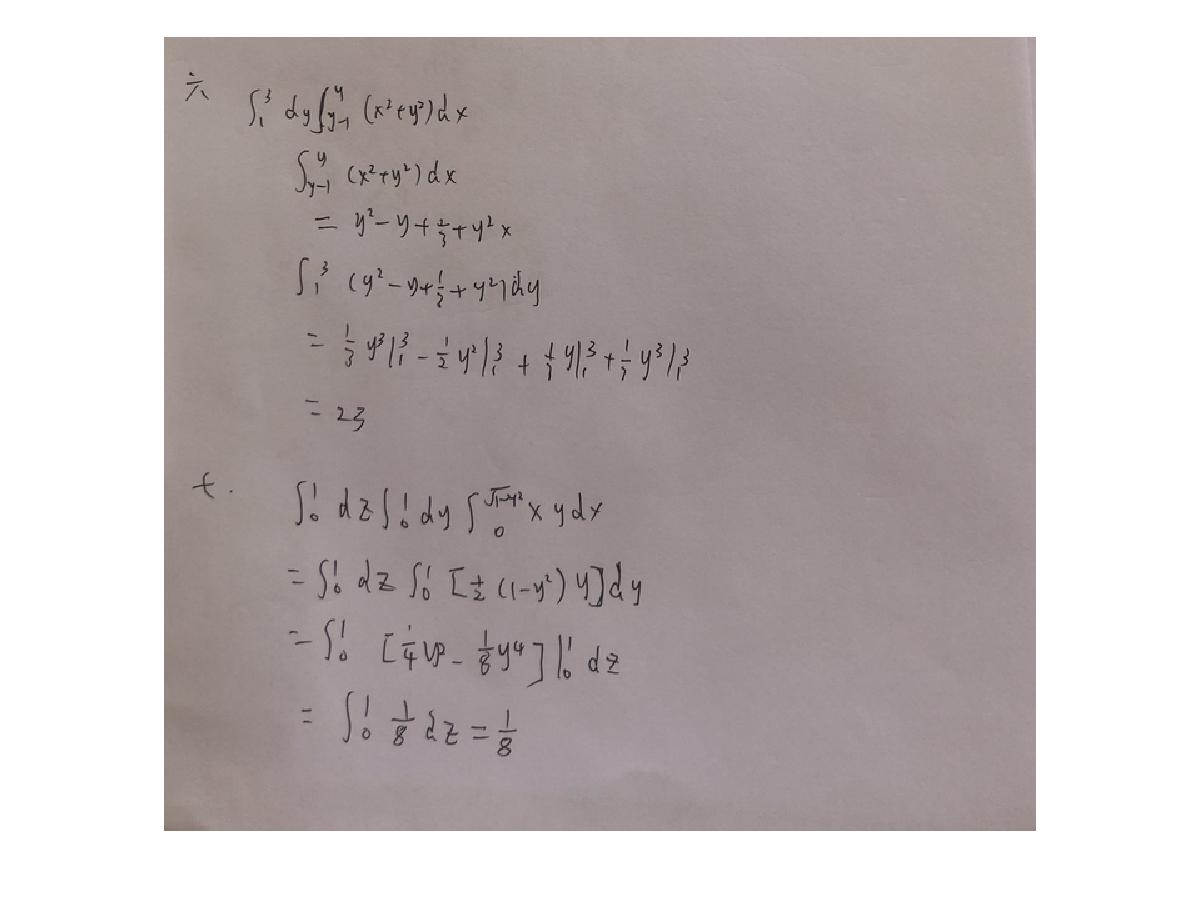 六 ∫₁³ dy∫_{y-1}^{y} (x²+y²)dx
∫_{y-1}^{y} (x²+y²)dx
= y²-y+⅓+y²x
∫₁³ (y²-y+⅓+y²)dy
= ⅓y³|₁³ - ½y²|₁³ + ⅓y|₁³ + ⅓y³|₁³
= 23
七. ∫₀¹ dz∫₀¹ dy ∫₀^{√(1-y²)} xydx
= ∫₀¹ dz ∫₀¹ [½(1-y²)y]dy
= ∫₀¹ [¼ - ⅛y⁴]|₀¹ dz
= ∫₀¹ ⅛ dz = ⅛